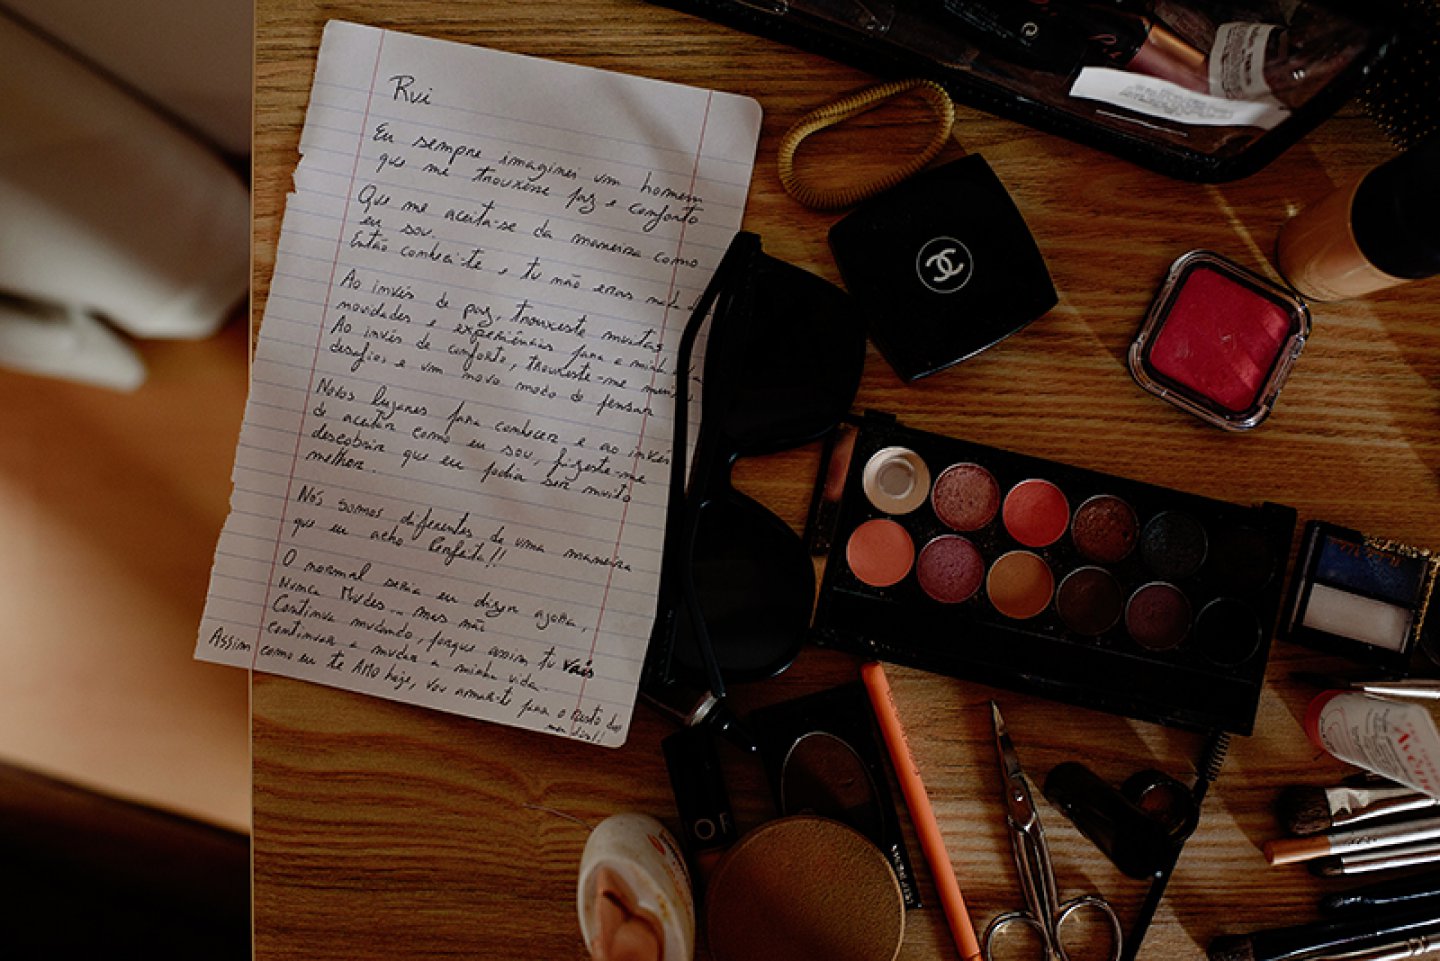 Rui
Eu sempre imaginei um homem
que me trouxesse paz e conforto
Que me aceita-se da maneira como
eu sou.
Então conheci-te e tu não eras nada
Ao invés de paz, trouxeste muitas
novidades e experiências para a minha
Ao invés de conforto, trouxeste-me
desafios e um novo modo de pensar
Novos lugares para conhecer e ao invés
de aceitar como eu sou, fizeste-me
descobrir que eu podia ser muito
melhor.
Nós somos diferentes de uma maneira
que eu acho Perfeita!!
O normal seria eu dizer agora,
Nunca Mudes... mas não
Continua mudando, porque assim tu vais
continuar a mudar a minha vida.
Assim como eu te AMO hoje, vou amar-te para o resto dos
meus dias!!
CHANEL
Avène